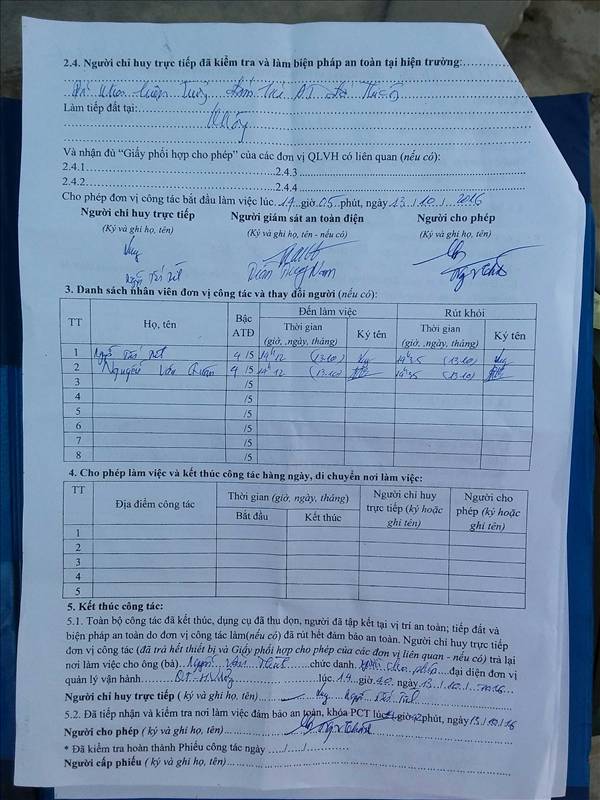 2.4. Người chỉ huy trực tiếp đã kiểm tra và làm biện pháp an toàn tại hiện trường:
Làm tiếp đất tại:
Không
Và nhận đủ “Giấy phối hợp cho phép” của các đơn vị QLVH có liên quan (nếu có):
2.4.1 2.4.3
2.4.2 2.4.4
Cho phép đơn vị công tác bắt đầu làm việc lúc 14 giờ 05 phút, ngày 13/10/2016
Người chỉ huy trực tiếp Người giám sát an toàn điện Người cho phép
(Ký và ghi họ, tên) (Ký và ghi họ, tên - nếu có) (Ký và ghi họ, tên)
3. Danh sách nhân viên đơn vị công tác và thay đổi người (nếu có):
TT Họ, tên Bậc ATĐ Đến làm việc Rút khỏi
Thời gian (giờ, ,ngày, tháng) Ký tên Thời gian (giờ, ngày, tháng) Ký tên
1 4 /5 14h12 (13-10) 14h35 (13-10)
2 Nguyễn Văn 4 /5 14h12 (13-10) 14h35 (13-10)
3 /5
4 /5
5 /5
6 /5
7 /5
8 /5
4. Cho phép làm việc và kết thúc công tác hàng ngày, di chuyển nơi làm việc:
TT Địa điểm công tác Thời gian (giờ, ngày, tháng) Người chỉ huy trực tiếp (ký hoặc ghi tên) Người cho phép (ký hoặc ghi tên)
Bắt đầu Kết thúc
1
2
3
4
5
5. Kết thúc công tác:
5.1. Toàn bộ công tác đã kết thúc, dụng cụ đã thu dọn, người đã tập kết tại vị trí an toàn; tiếp đất và
biện pháp an toàn do đơn vị công tác làm(nếu có) đã rút hết đảm bảo an toàn. Người chỉ huy trực tiếp
đơn vị công tác (đã trả hết thiết bị và Giấy phối hợp cho phép của các đơn vị liên quan - nếu có) trả lại
nơi làm việc cho ông (bà) chức danh cho phép đại diện đơn vị
quản lý vận hành lúc 14 giờ 40 ngày 13/10/2016
Người chỉ huy trực tiếp ( ký và ghi họ, tên)
5.2. Đã tiếp nhận và kiểm tra nơi làm việc đảm bảo an toàn, khóa PCT lúc giờ phút, ngày 13/10/16
Người cho phép ( ký và ghi họ, tên)
* Đã kiểm tra hoàn thành Phiếu công tác ngày ..../...../..........
Người cấp phiếu ( ký và ghi họ, tên)